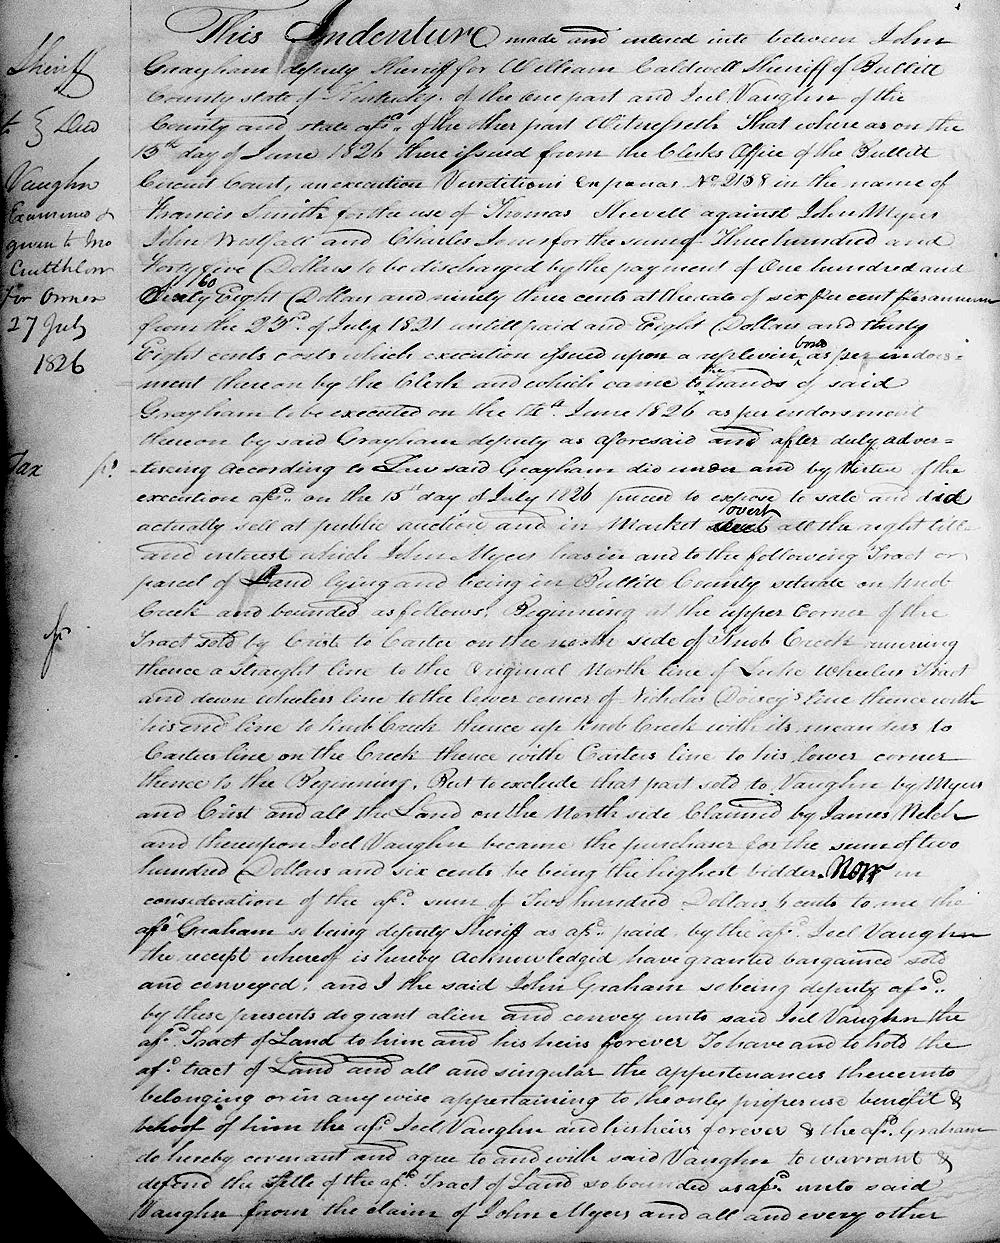 This Indenture made and entered into between John
Sheriff
Grayham deputy Sheriff for William Caldwell Sheriff of Bullitt
County state of Kentucky. of the one part and Joel Vaughn of the
to } Deed
County and state afsd. of the other part Witnesseth That where as on the
15th day of June 1826 there issued from the Clerks Office of the Bullitt
Vaughn
Circuit Court, an execution Venditioni Exponas No 2158 in the name of
Examined &
given to Jno
Cruthlow
for Owner
27 July
1826
Francis Smith for the use of Thomas Shevell against John Myers
John Westfall and Charles Jones for the sum of Three hundred and
Forty five Dollars to be discharged by the payment of One hundred and
Sixty Eight Dollars and ninety three cents at the rate of six per cent per annum
from the 23rd. of July 1821 untill paid and Eight Dollars and thirty
Eight cents costs which execution issued upon a replevin bond as per indors-
ment thereon by the Clerk and which came to the hands of said
Grayham to be executed on the June 1826 as per endorsment
thereon by said Grayham deputy as aforesaid and after duly adver-
Tax pd
tiseing according to Law said Grayham did under and by Virtue of the
execution afsd. on the 15th day of July 1826 proceed to expose to sale and did
actually sell at public auction and in Market overt all the right title
and interest which John Myers has in and to the following Tract or
parcel of Land lying and being in Bullitt County situate on Knob
Creek and bounded as follows. Beginning at the upper Corner of the
Tract sold by Crist to Carter on the north side of Knob Creek running
thence a straight line to the Original North line of Luke Wheelers Tract
and down whelers line to the lower corner of Nicholas Dorsey's line thence with
his end line to Knob Creek thence up Knob Creek with its meanders to
Carters line on the Creek thence with Carters line to his lower corner
thence to the Beginning. But to exclude that part sold to Vaughn by Myers
and Crist and all the Land on the North side Claimed by James Welch
and thereupon Joel Vaughn became the purchaser for the sum of two
hundred Dollars and six cents he being the highest bidder. Now in
consideration of the afsd. sum of Two hundred Dollars 6 cents to me the
afsd Graham so being deputy Sheriff as afsd. paid by the afsd. Joel Vaughn
the receipt whereof is hereby Acknowledged have granted bargained sold
and conveyed, and I the said John Graham so being deputy afsd.
by these presents do grant alien and convey unto said Joel Vaughn the
afsd. Tract of Land to him and his heirs forever To have and to hold the
afsd. tract of Land and all and singular the appertenances thereunto
belonging or in any wise appertaining to the only proper use benefit &
behoof of him the afsd Joel Vaughn and his heirs forever & the afsd. Graham
do hereby covenant and agree to and with said Vaughn to warrant &
defend the title of the afsd Tract of Land so bounded as afsd unto said
Vaughn from the claim of John Myers and all and every other